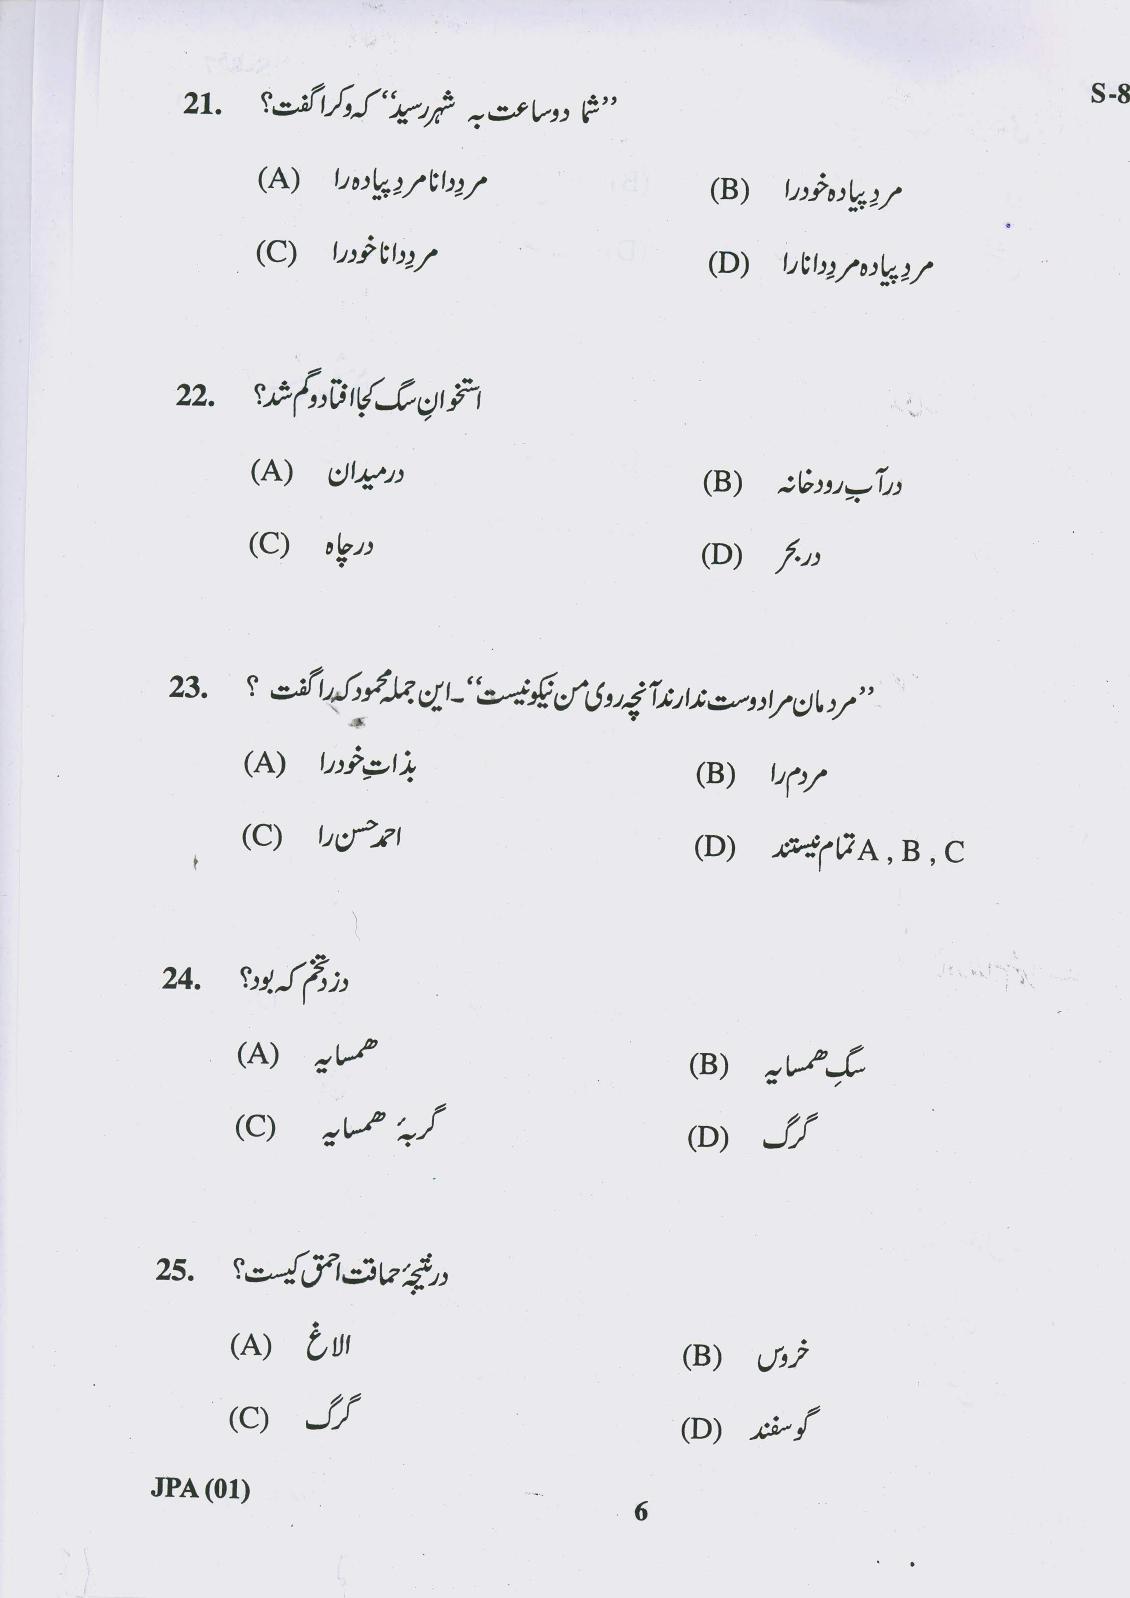 S-8
21. ”شما دو ساعت به شہر رسید“ که و کرا گفت؟
(A) مردِ دانا مردِ پیاده را
(B) مردِ پیاده خود را
(C) مردِ دانا خود را
(D) مردِ پیاده مردِ دانا را
22. استخوانِ سگ کجا افتاد و گم شد؟
(A) در میدان
(B) در آبِ رودخانه
(C) در چاه
(D) در بحر
23. ”مردمان مرا دوست ندارند آنچه روی من نیکو نیست“۔ این جمله محمود که را گفت ؟
(A) بذاتِ خود را
(B) مردم را
(C) احمد حسن را
(D) A , B , C تمام نیستند
24. دزد تخم که بود؟
(A) همسایه
(B) سگِ همسایه
(C) گربۂ همسایه
(D) گرگ
25. در نتیجۂ حماقت احمق کیست؟
(A) الاغ
(B) خروس
(C) گرگ
(D) گوسفند
JPA (01)
6